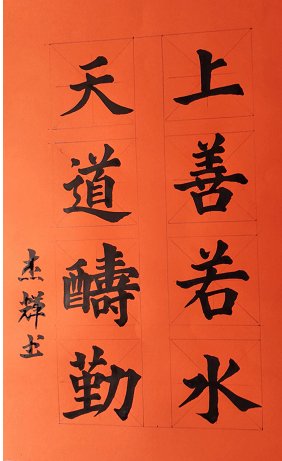 上善若水
天道酬勤
杰辉书